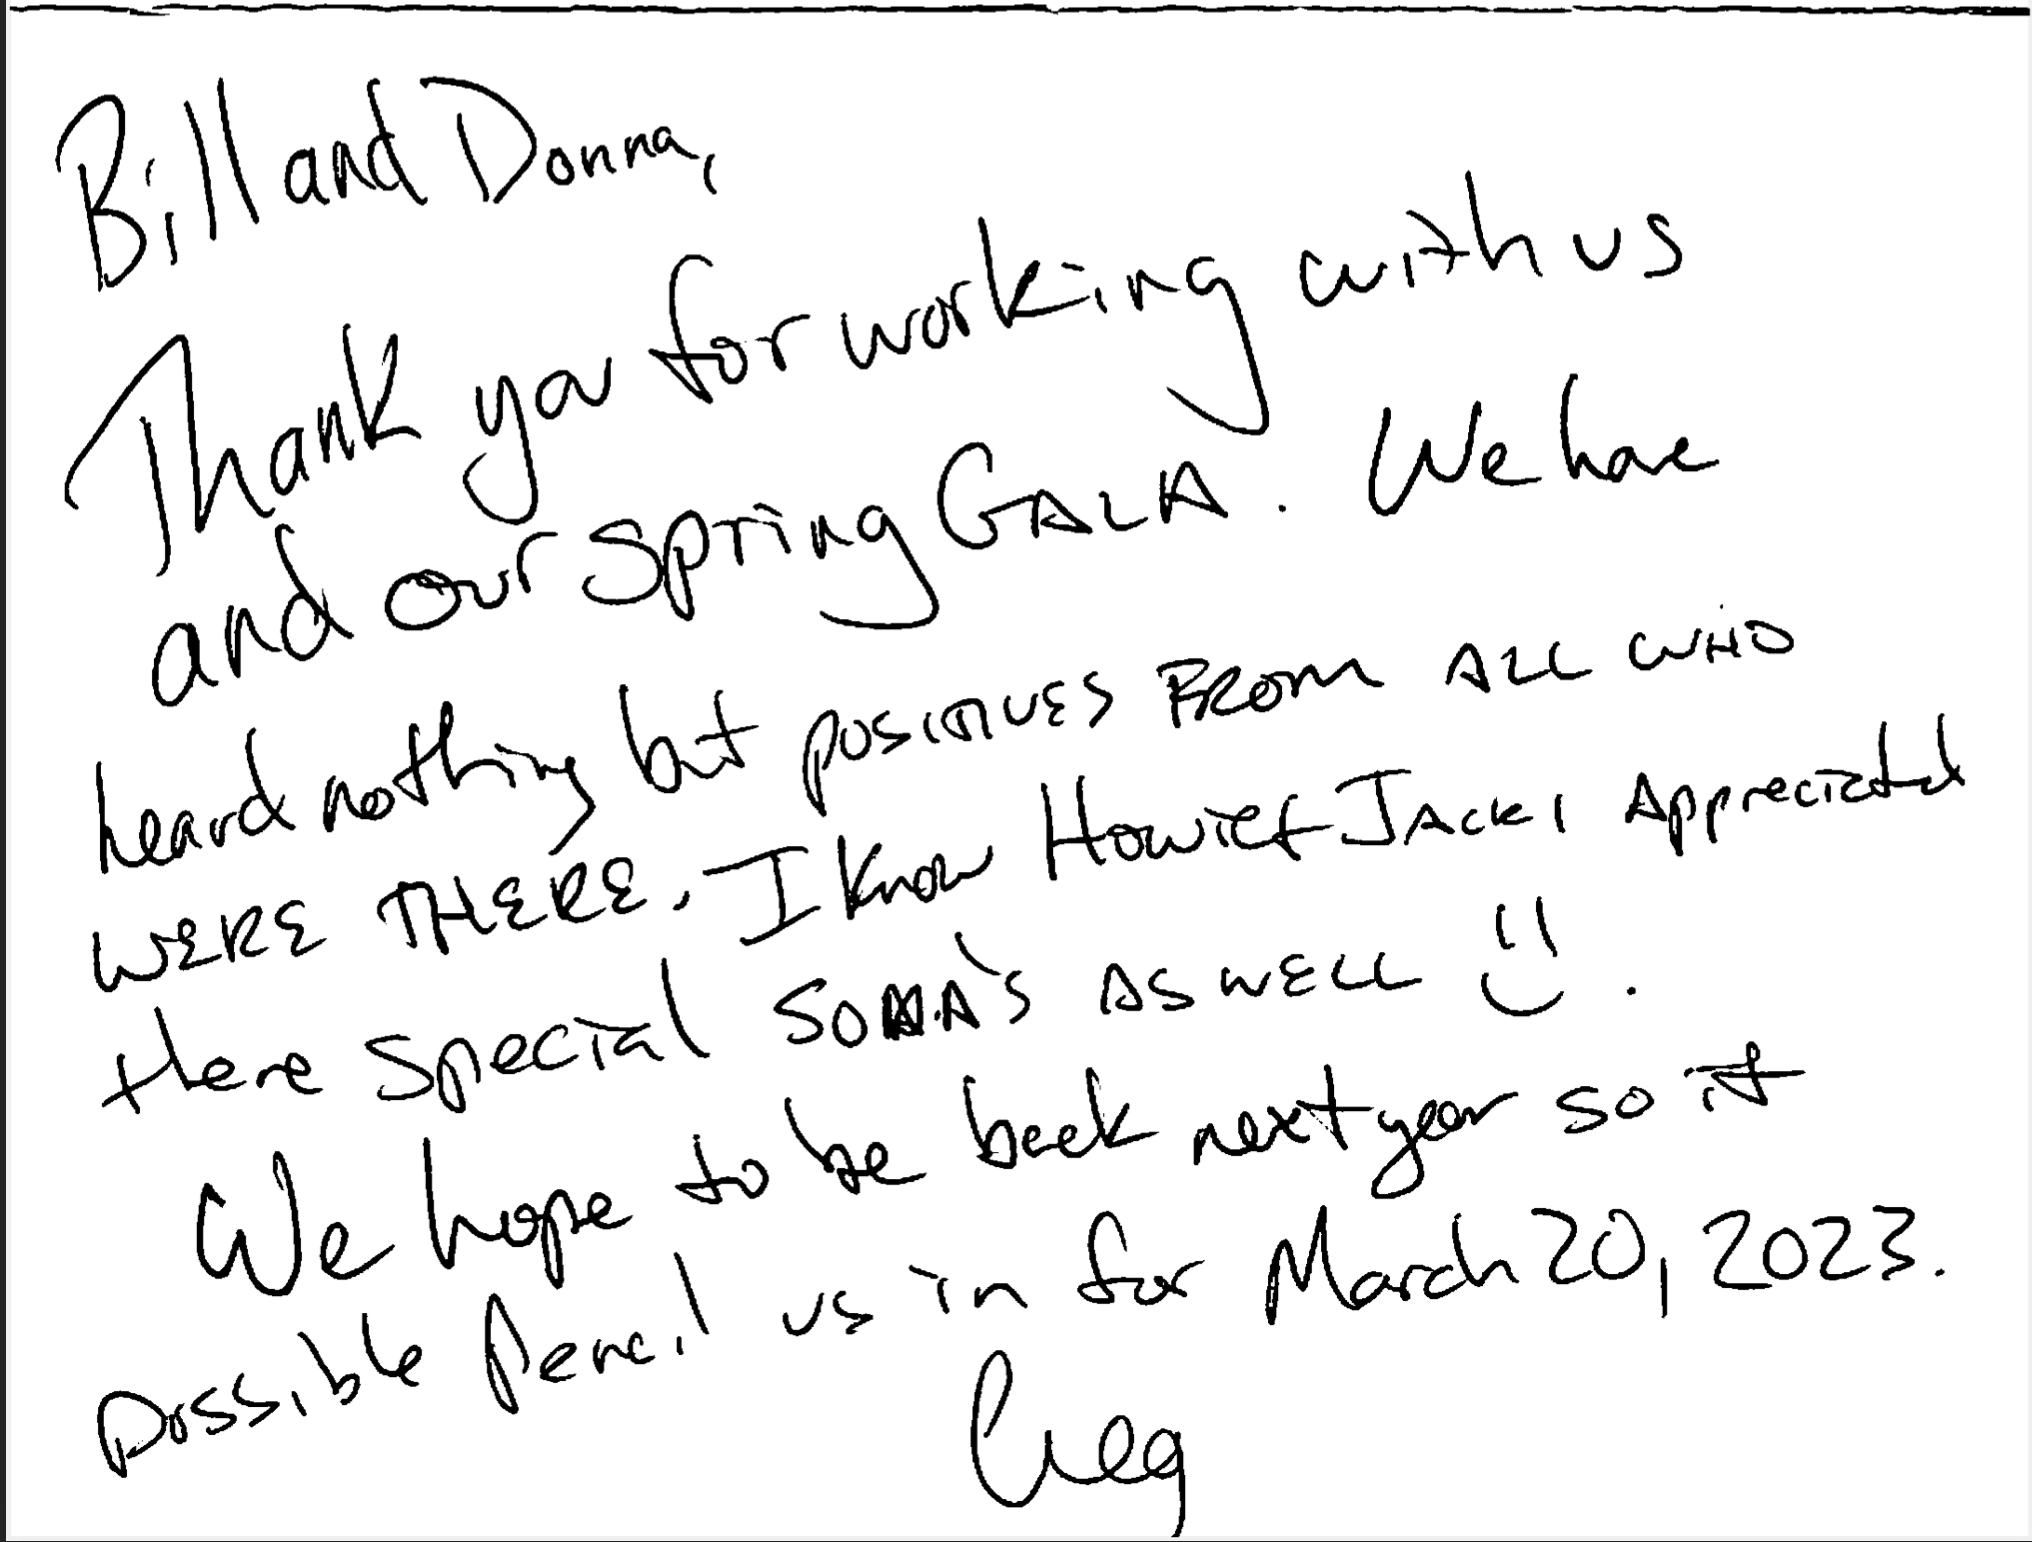 Bill and Donna,
Thank you for working with us
and our Spring GALA. We have
heard nothing but positives FROM ALL WHO
WERE THERE. I know Howie & JACKI Appreciated
there special SOMA'S AS WELL :)
We hope to be back next year so it
possible pencil us in for March 20, 2023.
Greg